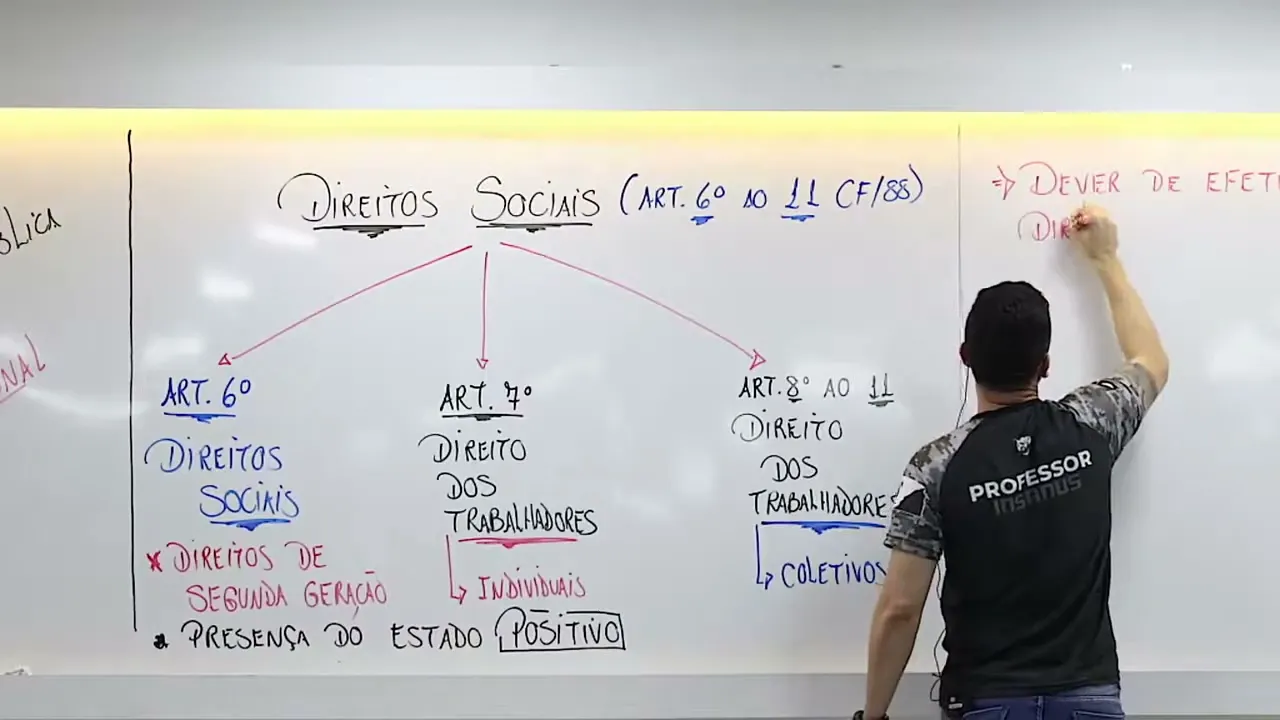 DIREITOS SOCIAIS (ART. 6º AO 11 CF/88)
ART. 6º
DIREITOS
SOCIAIS
* DIREITOS DE
SEGUNDA GERAÇÃO
* PRESENÇA DO ESTADO POSITIVO
ART. 7º
DIREITO
DOS
TRABALHADORES
INDIVIDUAIS
ART. 8º AO 11
DIREITO
DOS
TRABALHADORE
COLETIVOS
⇒ DEVER DE EFETI
DIR
PROFESSOR
INSANUS
NAL